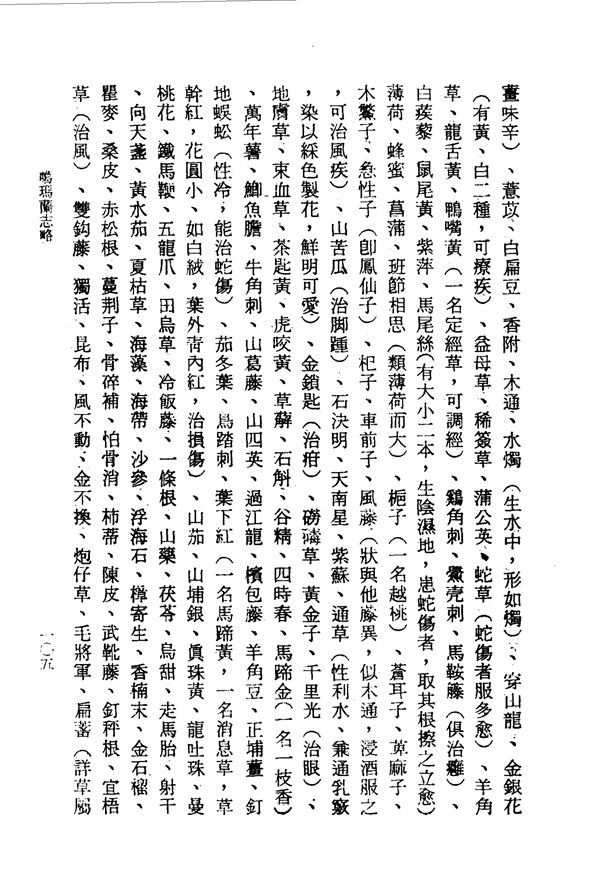 薑味辛）、薏苡、白扁豆、香附、木通、水燭（生水中，形如燭）、穿山龍、金銀花
（有黃、白二種，可療疾）、益母草、稀薟草、蒲公英、蛇草（蛇傷者服多愈）、羊角
草、龍舌黃、鴨嘴黃（一名定經草，可調經）、鷄角刺、黴壳刺、馬鞍藤（俱治癰）、
白蒺藜、鼠尾黃、紫萍、馬尾絲（有大小二本，生陰濕地，患蛇傷者，取其根擦之立愈）
薄荷、蜂蜜、菖蒲、班節相思（類薄荷而大）、梔子（一名越桃）、蒼耳子、萆麻子、
木鱉子、急性子（卽鳳仙子）、杞子、車前子、風藤（狀與他藤異，似木通，浸酒服之
，可治風疾）、山苦瓜（治脚踵）、石決明、天南星、紫蘇、通草（性利水、兼通乳竅
，染以綵色製花，鮮明可愛）、金鎖匙（治疳）、磅磄草、黃金子、千里光（治眼）、
地膚草、束血草、茶匙黃、虎咬黃、草薢、石斛、谷精、四時春、馬蹄金（一名一枝香）
、萬年薯、鯽魚膽、牛角刺、山葛藤、山四英、過江龍、檳包藤、羊角豆、正埔薑、釘
地蜈蚣（性冷，能治蛇傷）、茄冬葉、鳥踏刺、葉下紅（一名馬蹄黃，一名消息草，草
幹紅，花圓小、如白絨，葉外靑內紅，治損傷）、山茄、山埔銀、眞珠黃、龍吐珠、曼
桃花、鐵馬鞭、五龍爪、田烏草、冷飯藤、一條根、山藥、茯苓、烏甜、走馬胎、射干
、向天盞、黃水茄、夏枯草、海藻、海帶、沙參、浮海石、樟寄生、香楠末、金石榴、
瞿麥、桑皮、赤松根、蔓荆子、骨碎補、怕骨消、柿蒂、陳皮、武靴藤、釘秤根、宜梧
草（治風）、雙鈎藤、獨活、昆布、風不動、金不換、炮仔草、毛將軍、扁蓄（詳草屬
噶瑪蘭志略
一〇五